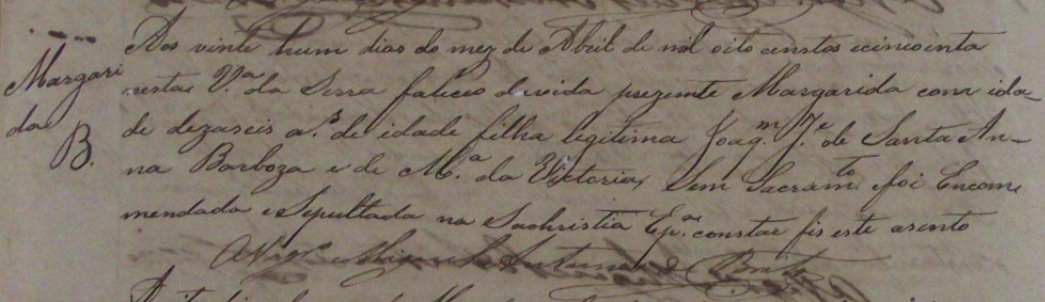 Margari
da
B.
Aos vinte hum dias do mez de Abril de mil oito centos e cincoenta
nesta V.ª da Serra faliceo da vida prezente Margarida com ida-
de dezaseis a.s de idade filha legitima Joaq.m J.e de Santa An-
na Barboza e de M.ª da Victoria, Sem Sacram.to e foi Encom
mendada e Sepultada na Sachristia E p.ª constar fis este asento
O Vigr.o Antunes